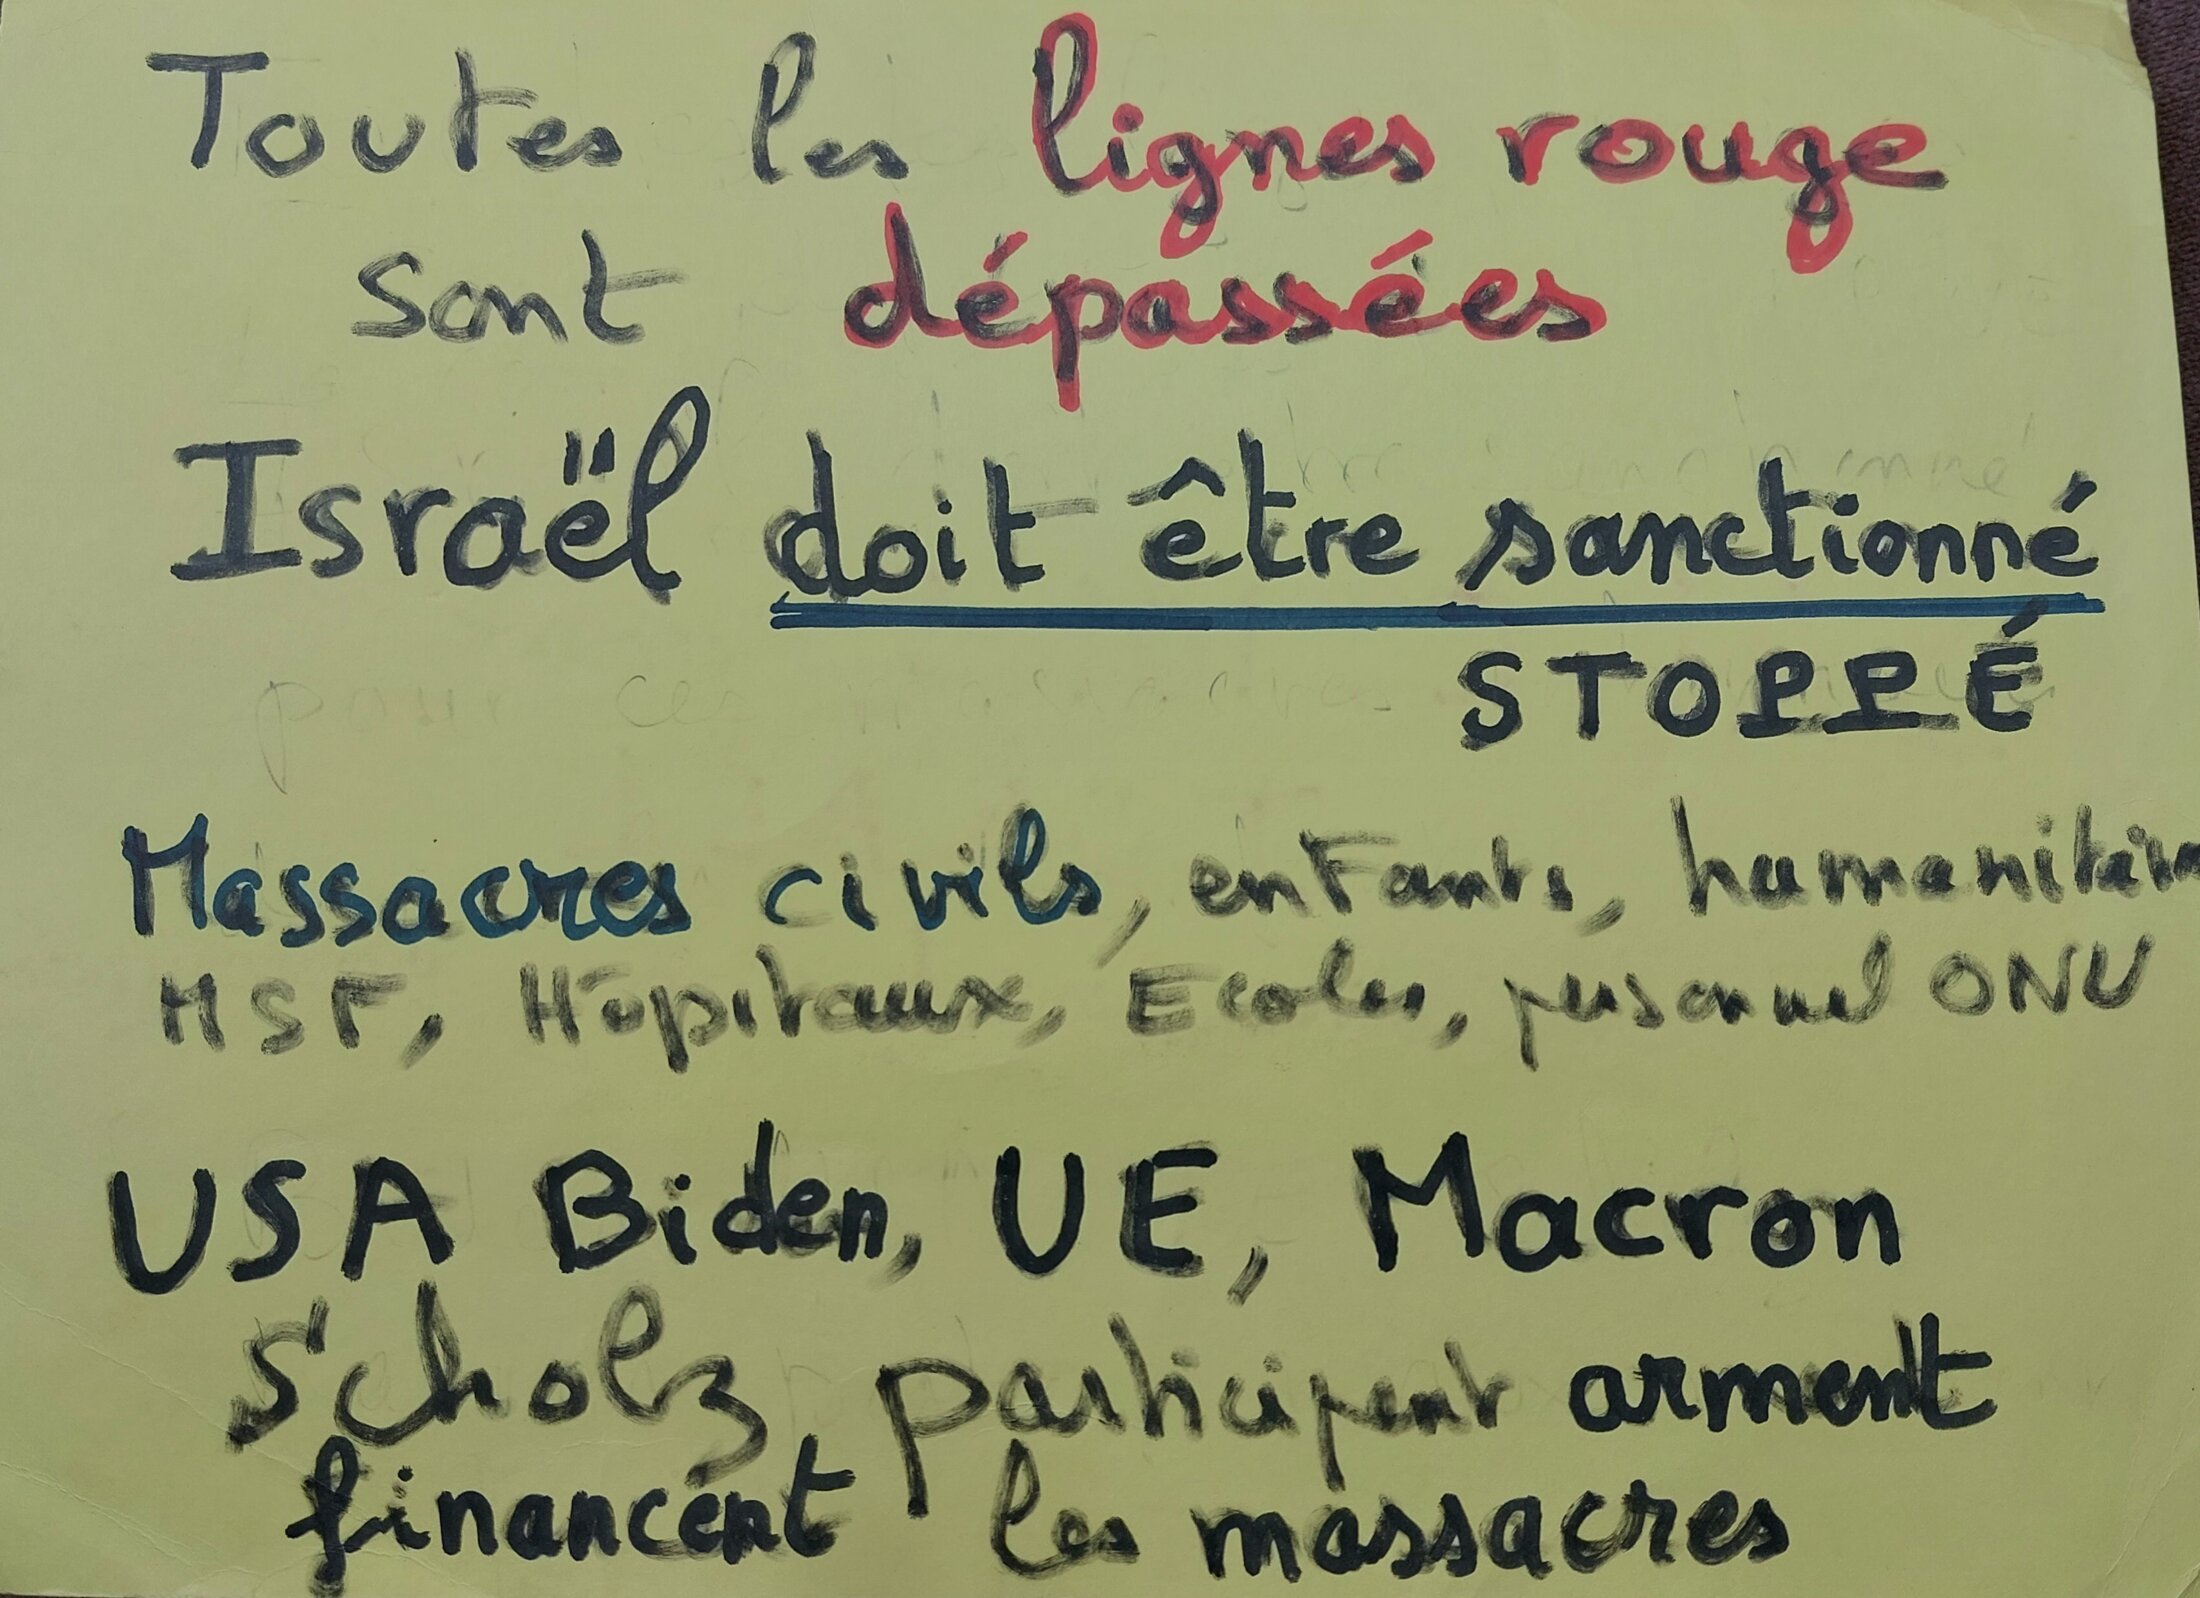 Toutes les lignes rouge
sont dépassées
Israël doit être sanctionné
STOPPÉ
Massacres civils, enfants, humanitaires
MSF, Hôpitaux, Ecoles, personnel ONU
USA Biden, UE, Macron
Scholz participent arment
financent les massacres